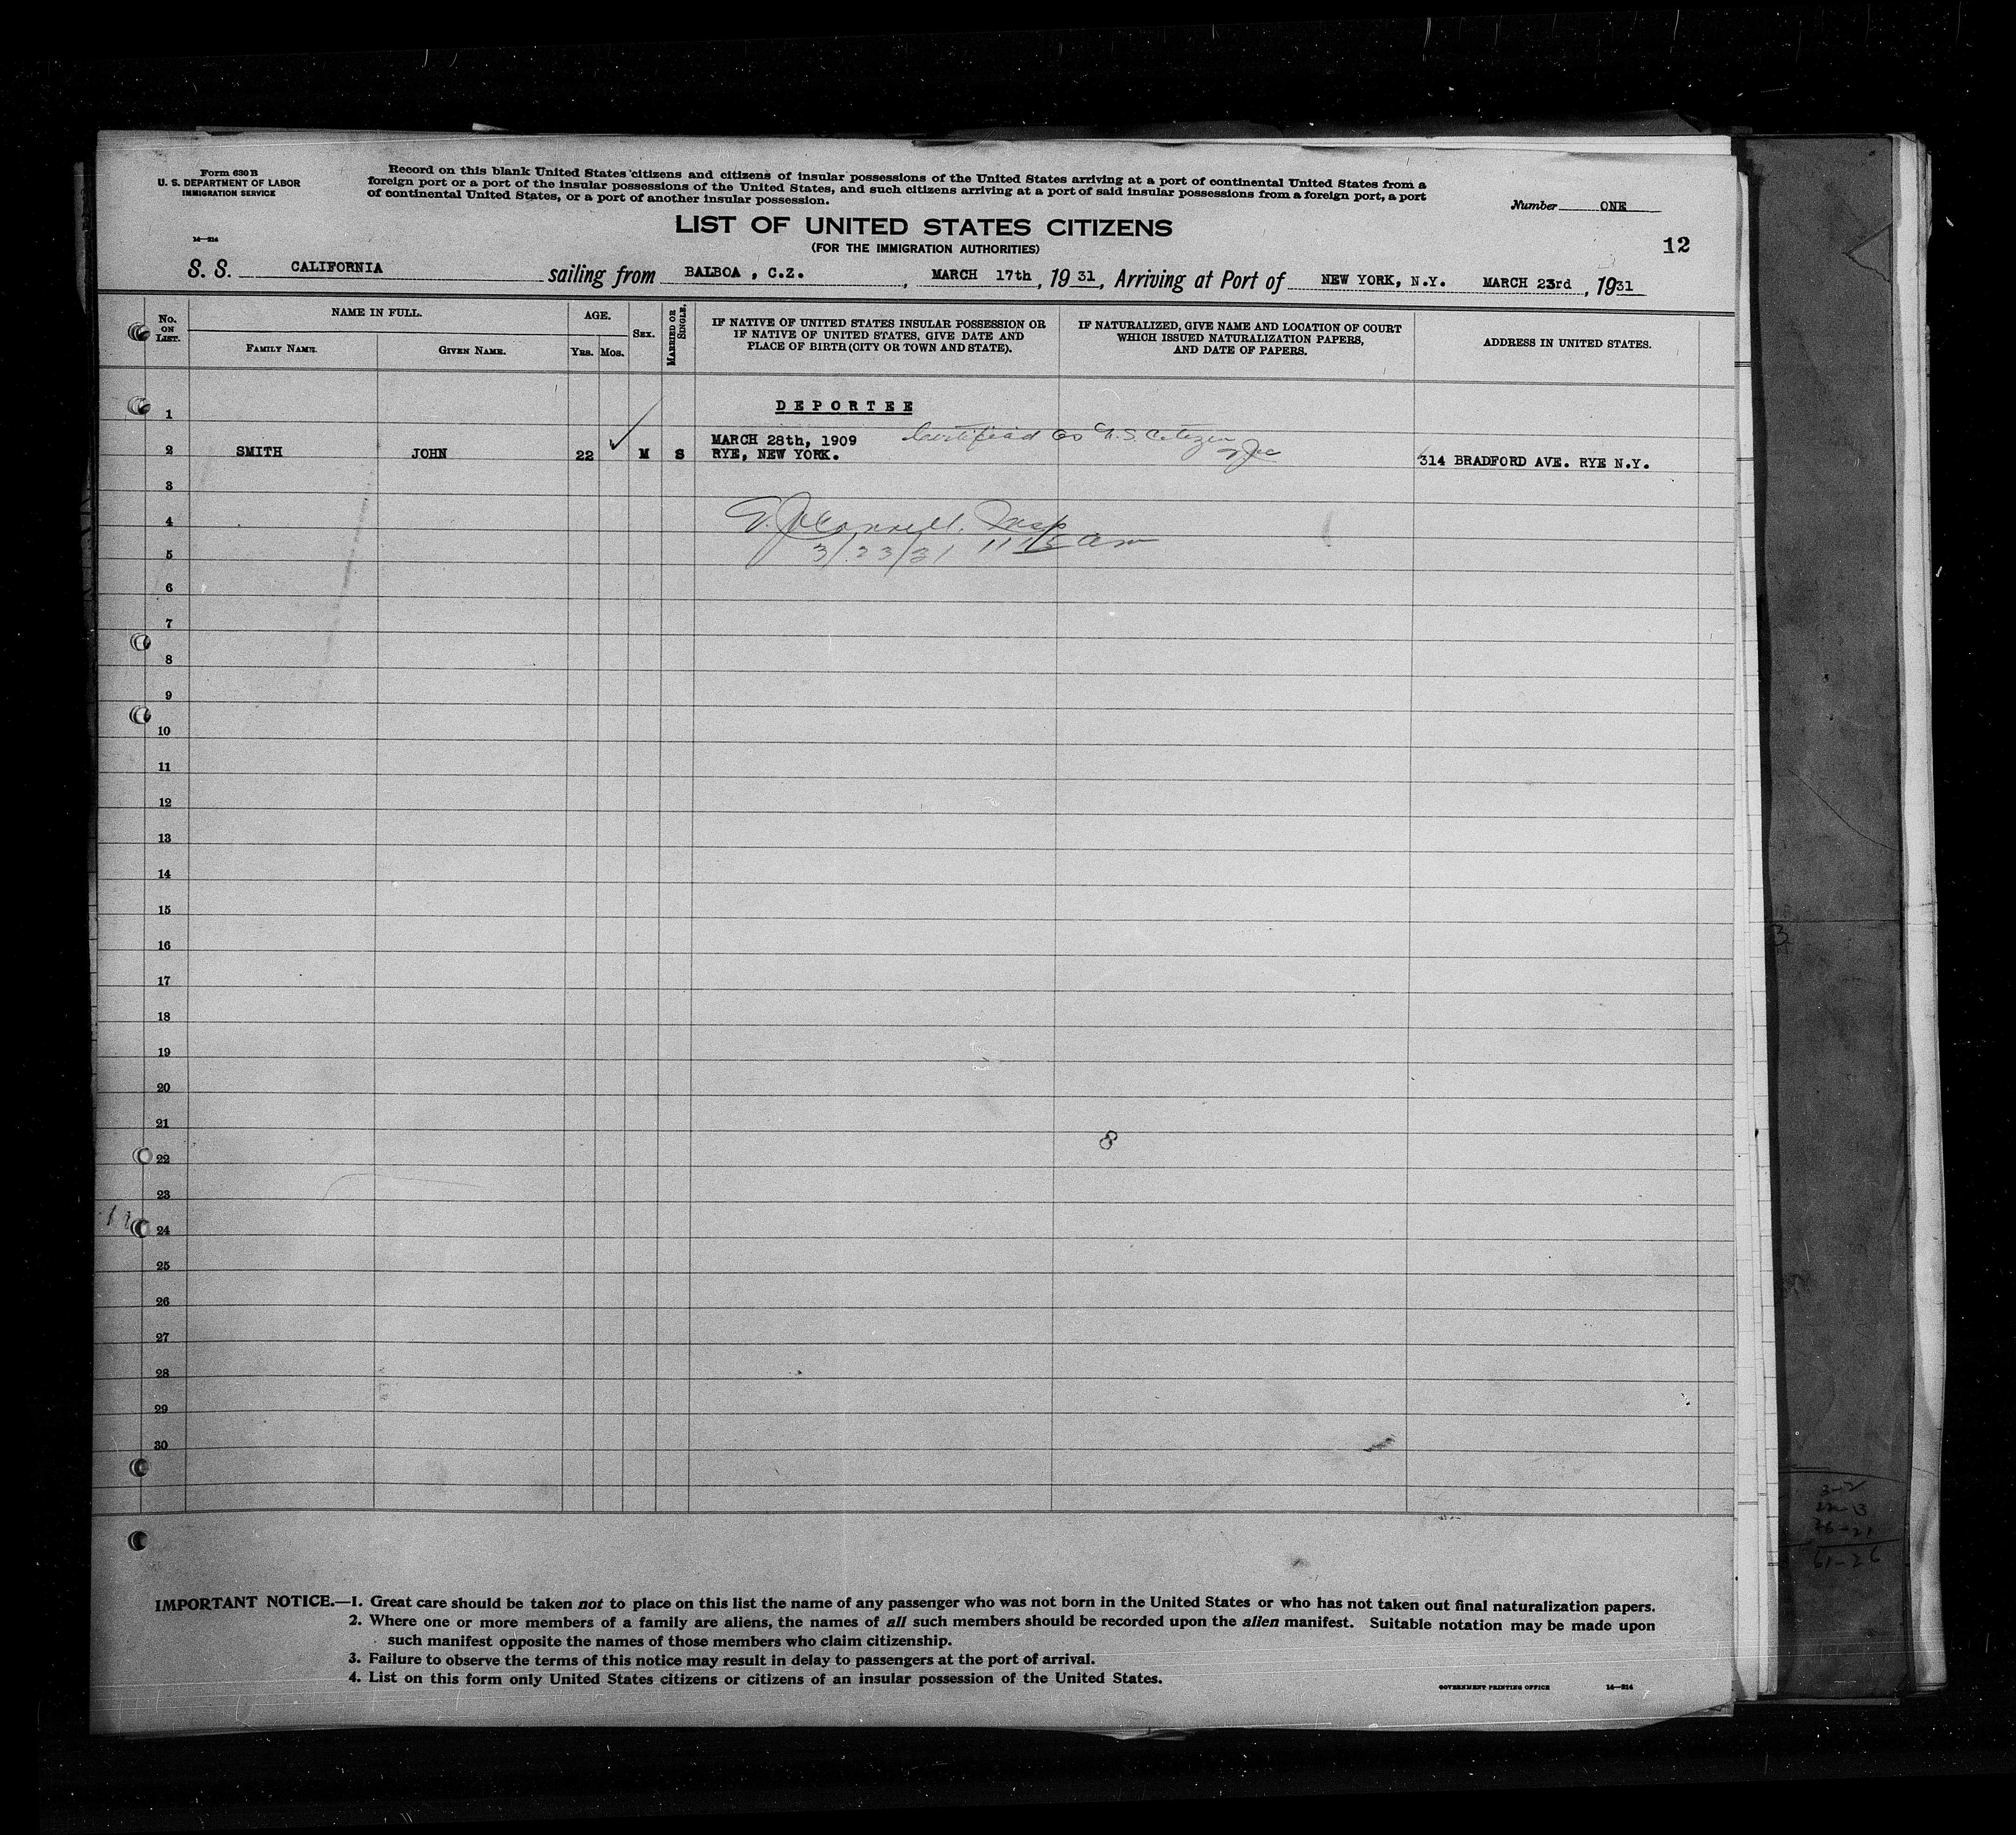 Form 630 B
U. S. DEPARTMENT OF LABOR
IMMIGRATION SERVICE
14—214
Record on this blank United States citizens and citizens of insular possessions of the United States arriving at a port of continental United States from a
foreign port or a port of the insular possessions of the United States, and such citizens arriving at a port of said insular possessions from a foreign port, a port
of continental United States, or a port of another insular possession.
Number ONE
LIST OF UNITED STATES CITIZENS
(FOR THE IMMIGRATION AUTHORITIES)
12
S. S. CALIFORNIA sailing from BALBOA , C.Z. , MARCH 17th , 19 31 , Arriving at Port of NEW YORK, N.Y. MARCH 23rd , 19 31
No. ON LIST.
NAME IN FULL.
FAMILY NAME.
GIVEN NAME.
AGE.
YRS.
MOS.
SEX.
MARRIED OR SINGLE.
IF NATIVE OF UNITED STATES INSULAR POSSESSION OR
IF NATIVE OF UNITED STATES, GIVE DATE AND
PLACE OF BIRTH (CITY OR TOWN AND STATE).
IF NATURALIZED, GIVE NAME AND LOCATION OF COURT
WHICH ISSUED NATURALIZATION PAPERS,
AND DATE OF PAPERS.
ADDRESS IN UNITED STATES.
1 DEPORTEE
MARCH 28th, 1909 Certified as U.S. Citizen
2 SMITH JOHN 22 ✓ M S RYE, NEW YORK. 314 BRADFORD AVE. RYE N.Y.
3
4 Insp
5 3/23/31 11 15 am
6
7
8
9
10
11
12
13
14
15
16
17
18
19
20
21
8
22
23
24
25
26
27
28
29
30
3-2
22-3
36-21
61-26
IMPORTANT NOTICE.—1. Great care should be taken not to place on this list the name of any passenger who was not born in the United States or who has not taken out final naturalization papers.
2. Where one or more members of a family are aliens, the names of all such members should be recorded upon the alien manifest. Suitable notation may be made upon
such manifest opposite the names of those members who claim citizenship.
3. Failure to observe the terms of this notice may result in delay to passengers at the port of arrival.
4. List on this form only United States citizens or citizens of an insular possession of the United States.
GOVERNMENT PRINTING OFFICE 14—214